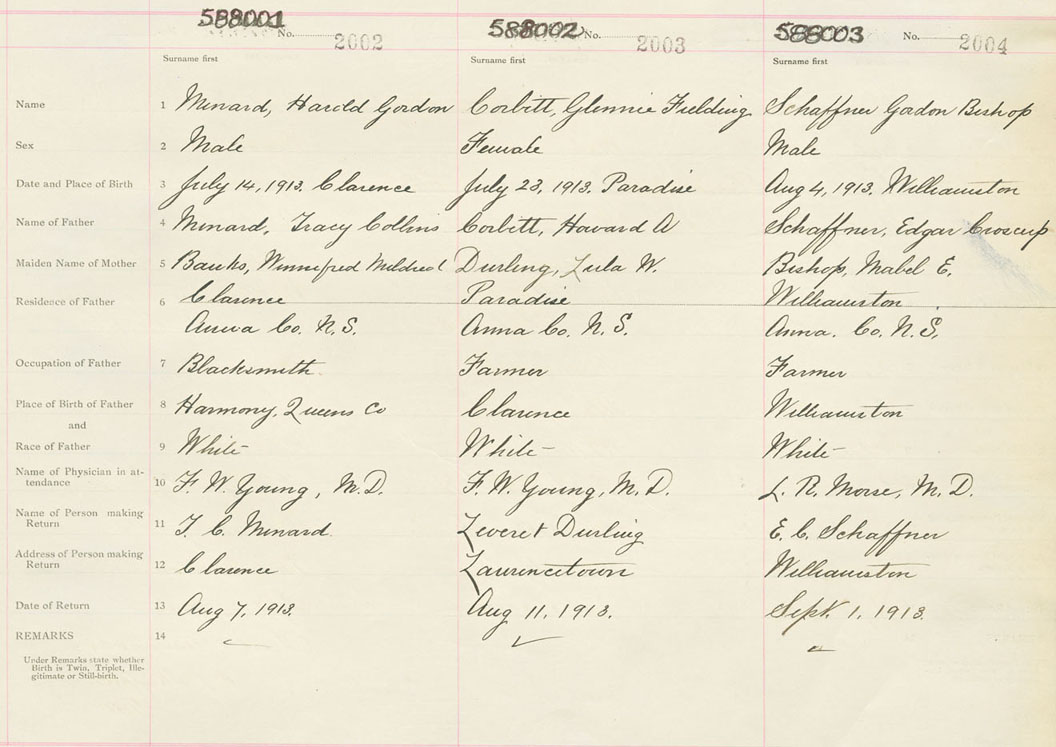 588001 588002 588003
No. 2002 No. 2003 No. 2004
Surname first Surname first Surname first
Name 1 Minard, Harold Gordon Corbitt, Glennie Fielding Schaffner Gordon Bishop
Sex 2 Male Female Male
Date and Place of Birth 3 July 14, 1913. Clarence July 23, 1913. Paradise Aug 4, 1913. Williamston
Name of Father 4 Minard, Tracy Collins Corbitt, Howard A Schaffner, Edgar Croscup
Maiden Name of Mother 5 Banks, Winnifred Mildred Durling, Lula W. Bishop, Mabel E.
Residence of Father 6 Clarence Paradise Williamston
Anna Co. N.S. Anna Co. N.S. Anna. Co. N.S.
Occupation of Father 7 Blacksmith. Farmer Farmer
Place of Birth of Father 8 Harmony, Queens Co Clarence Williamston
and
Race of Father 9 White White White
Name of Physician in at-
tendance 10 F. W. Young, M.D. F. W. Young, M.D. L. R. Morse, M.D.
Name of Person making
Return 11 T. C. Minard. Leveret Durling E. C. Schaffner
Address of Person making
Return 12 Clarence Lawrencetown Williamston
Date of Return 13 Aug 7, 1913. Aug 11, 1913. Sept. 1, 1913.
REMARKS 14
Under Remarks state whether
Birth is Twin, Triplet, Ille-
gitimate or Still-birth.